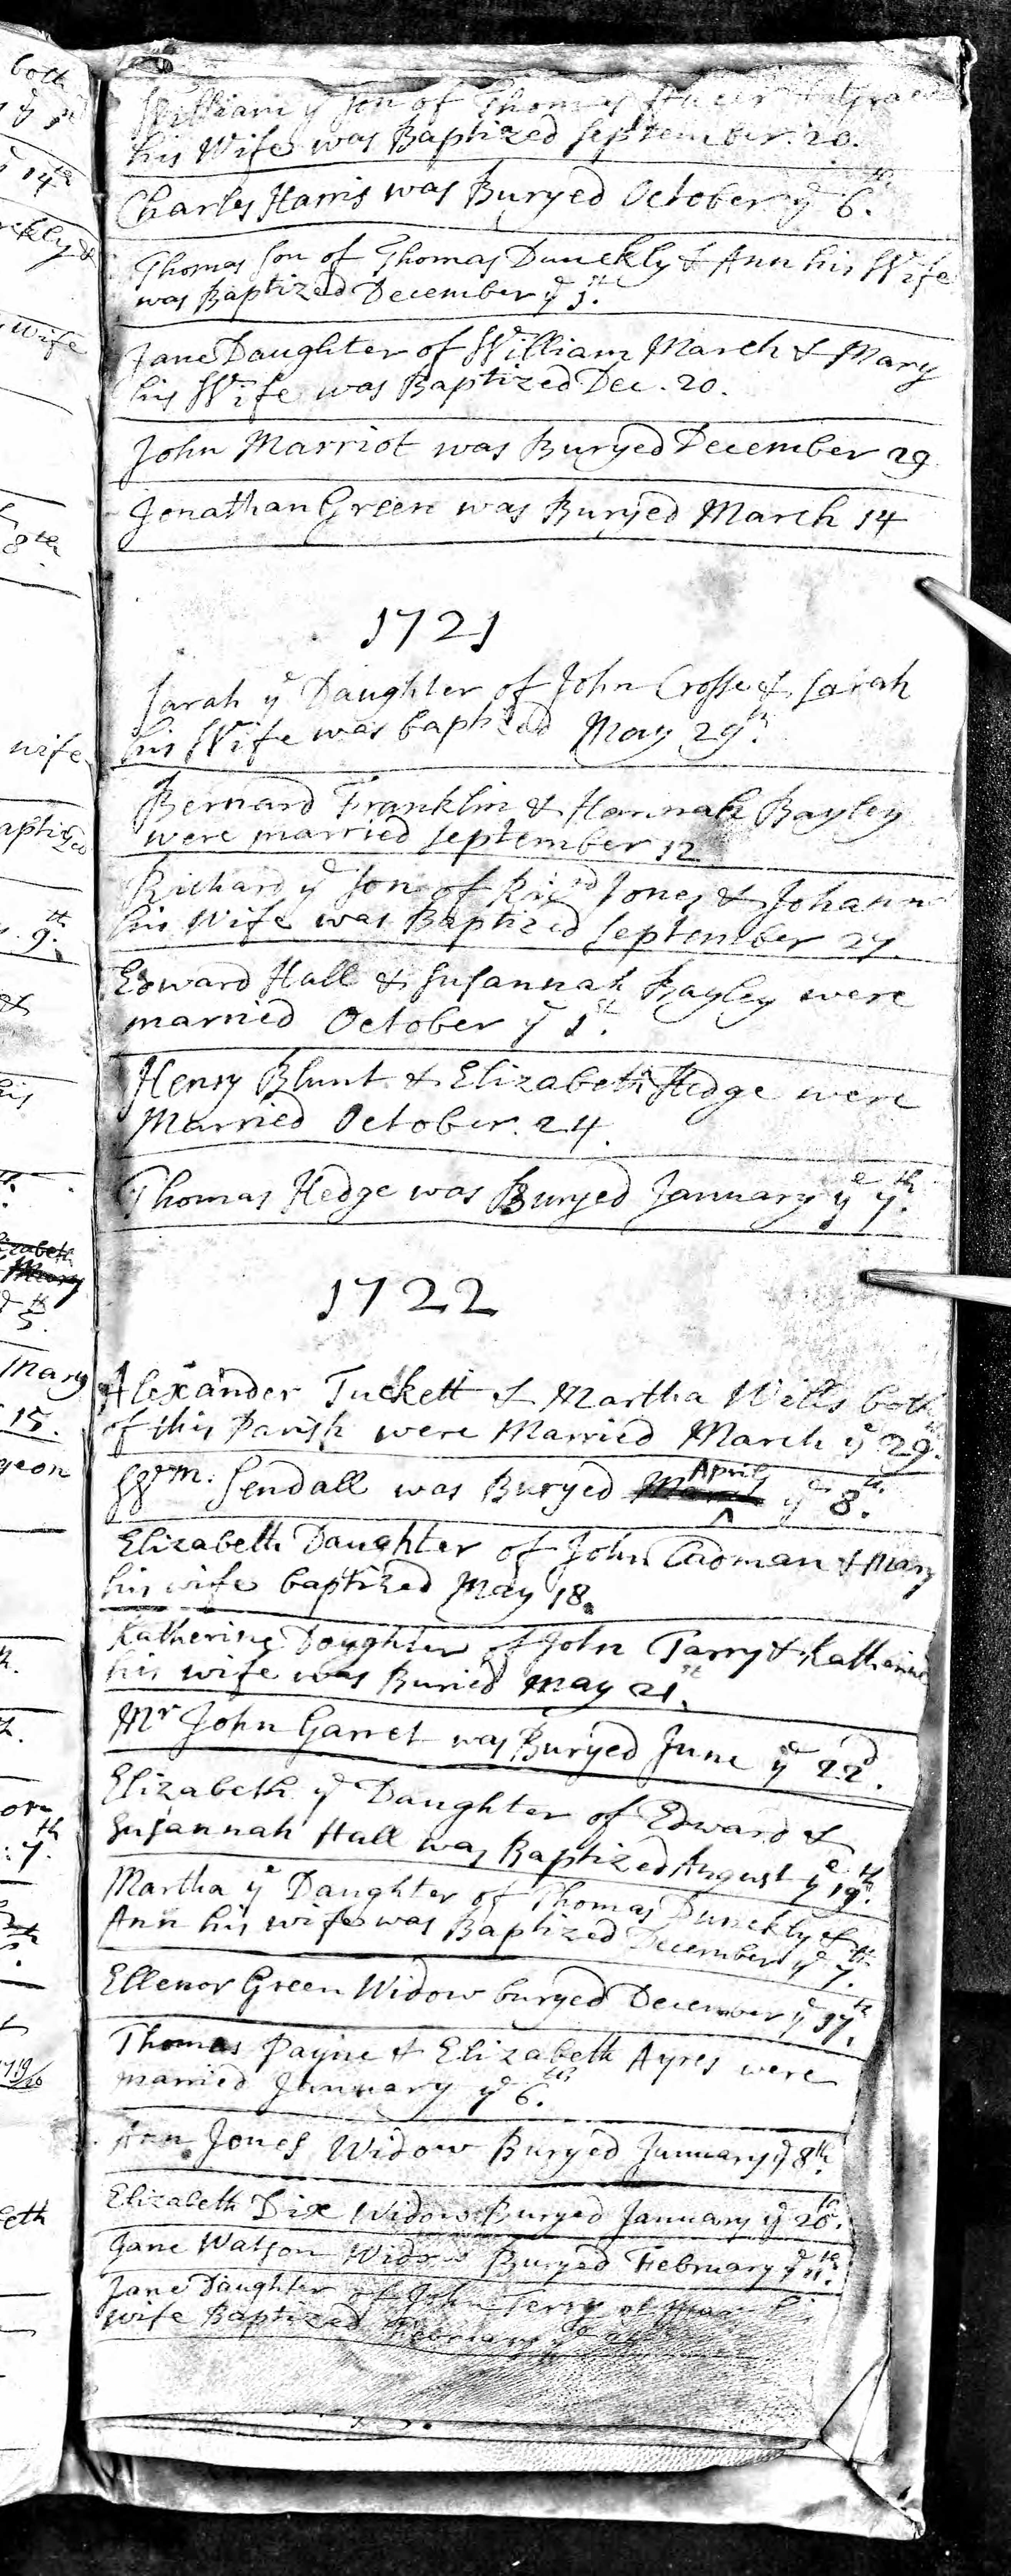 William yᵉ son of Thomas
his Wife was Baptized September. 20.
Charles Harris was Buryed October yᵉ 6.ᵗʰ
Thomas son of Thomas Dunckly & Ann his Wife
was Baptized December yᵉ 1.ˢᵗ
Jane Daughter of William March & Mary
his Wife was Baptized Dec. 20.
John Marriot was Buryed December 29
Jonathan Green was Buryed March 14
1721
Sarah yᵉ Daughter of John Crosse & Sarah
his Wife was baptized May 29ᵗʰ.
Bernard Franklin & Hannah Bayley
were married September 12
Richard yᵉ son of Ricʳᵈ Jones & Johann
his Wife was Baptized September 27.
Edward Hall & Susannah Bayley were
married October yᵉ 1.ˢᵗ
Henry Blunt & Elizabeth Hedge were
Married October. 24.
Thomas Hedge was Buryed January yᵉ 7.ᵗʰ
1722
Alexander Tuckett & Martha Wills both
of this Parish were Married March yᵉ 29.ᵗʰ
Wᵐ. Sendall was Buryed April yᵉ 8.ᵗʰ
Elizabeth Daughter of John Cadman & Mary
his wife baptized May 18.
Katherine Daughter of John Tarry & Katherine
his wife was Buried May 21.ˢᵗ
Mʳ John Garret was Buryed June yᵉ 22.ᵈ
Elizabeth yᵉ Daughter of Edward &
Susannah Hall was Baptized August yᵉ 19.ᵗʰ
Martha yᵉ Daughter of Thomas Dunckly &
Ann his wife was Baptized December yᵉ 7.ᵗʰ
Ellenor Green Widow buryed December yᵉ 17.ᵗʰ
Thomas Payne & Elizabeth Ayres were
married January yᵉ 6.ᵗʰ
Ann Jones Widow Buryed January yᵉ 8ᵗʰ.
Elizabeth Dix Widow Buryed January yᵉ 20.ᵗʰ
Jane Watson Widow Buryed February yᵉ 11.ᵗʰ
Jane Daughter of John Terry &
wife Baptized February yᵉ